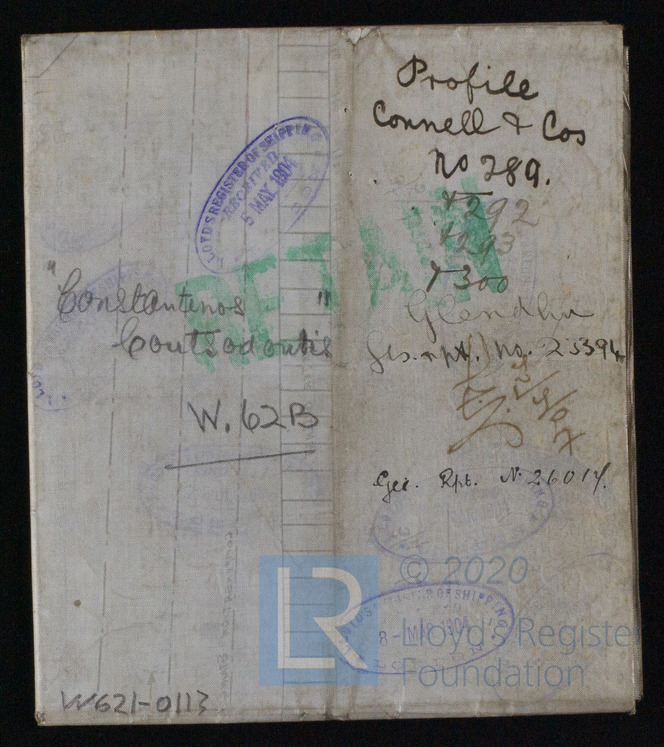 Profile
Connell & Cos
No 289.
+292
+293
+300
Glendhu
Gls. rpt. No. 25394
Gls. Rpt. No 26014.
LLOYD'S REGISTER OF SHIPPING
RECEIVED
5 MAY 1904
RETAIN
"Constantenos
Coutsodontis"
W.62B
LLOYD'S REGISTER OF SHIPPING
8-MAR 190
W621-0113
LR
© 2020
Lloyd's Register
Foundation